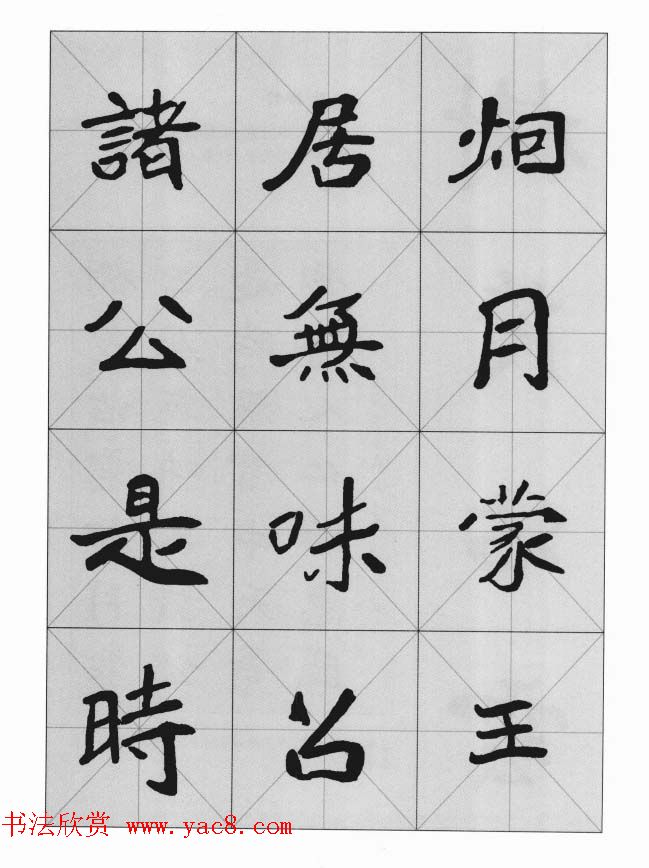 炯月蒙王
居無味
諸公是時
书法欣赏 www.yac8.com